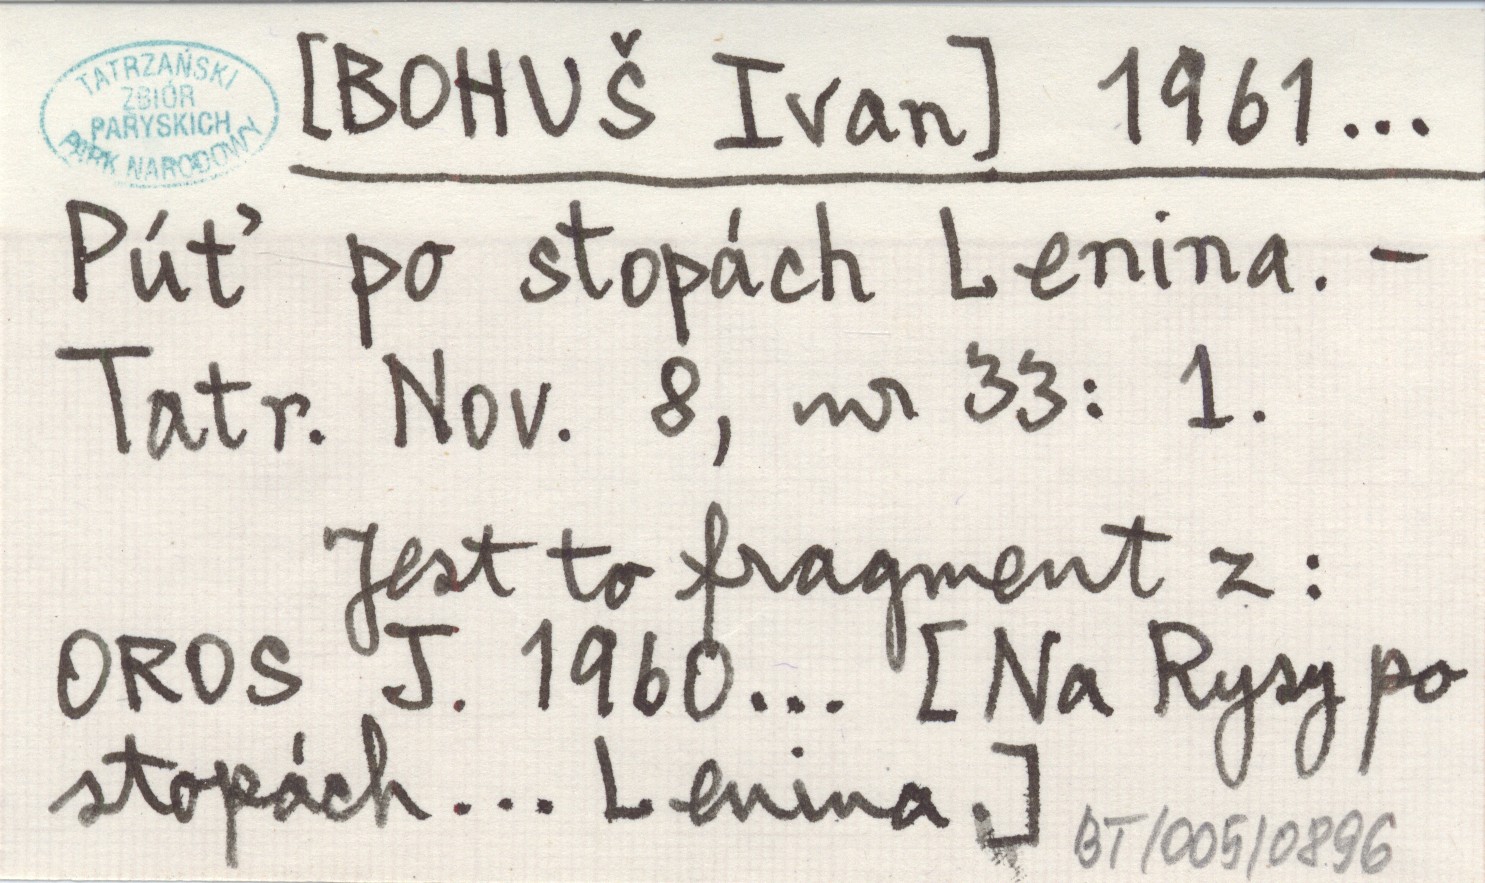 TATRZAŃSKI
ZBIÓR
PARYSKICH
PARK NARODOWY
[BOHUŠ Ivan] 1961...
Púť po stopách Lenina. –
Tatr. Nov. 8, nr 33: 1.
Jest to fragment z:
OROS J. 1960... [Na Rysy po
stopách... Lenina.]
BT/005/0896